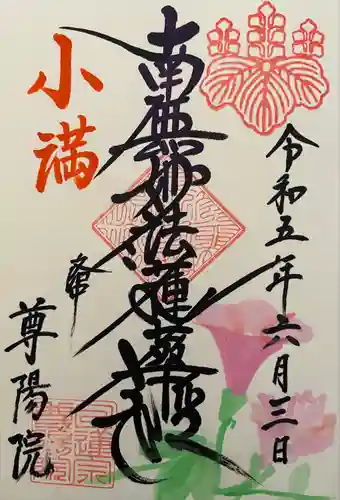 令和五年六月三日
南無妙法蓮華経
小満
奉
尊陽院